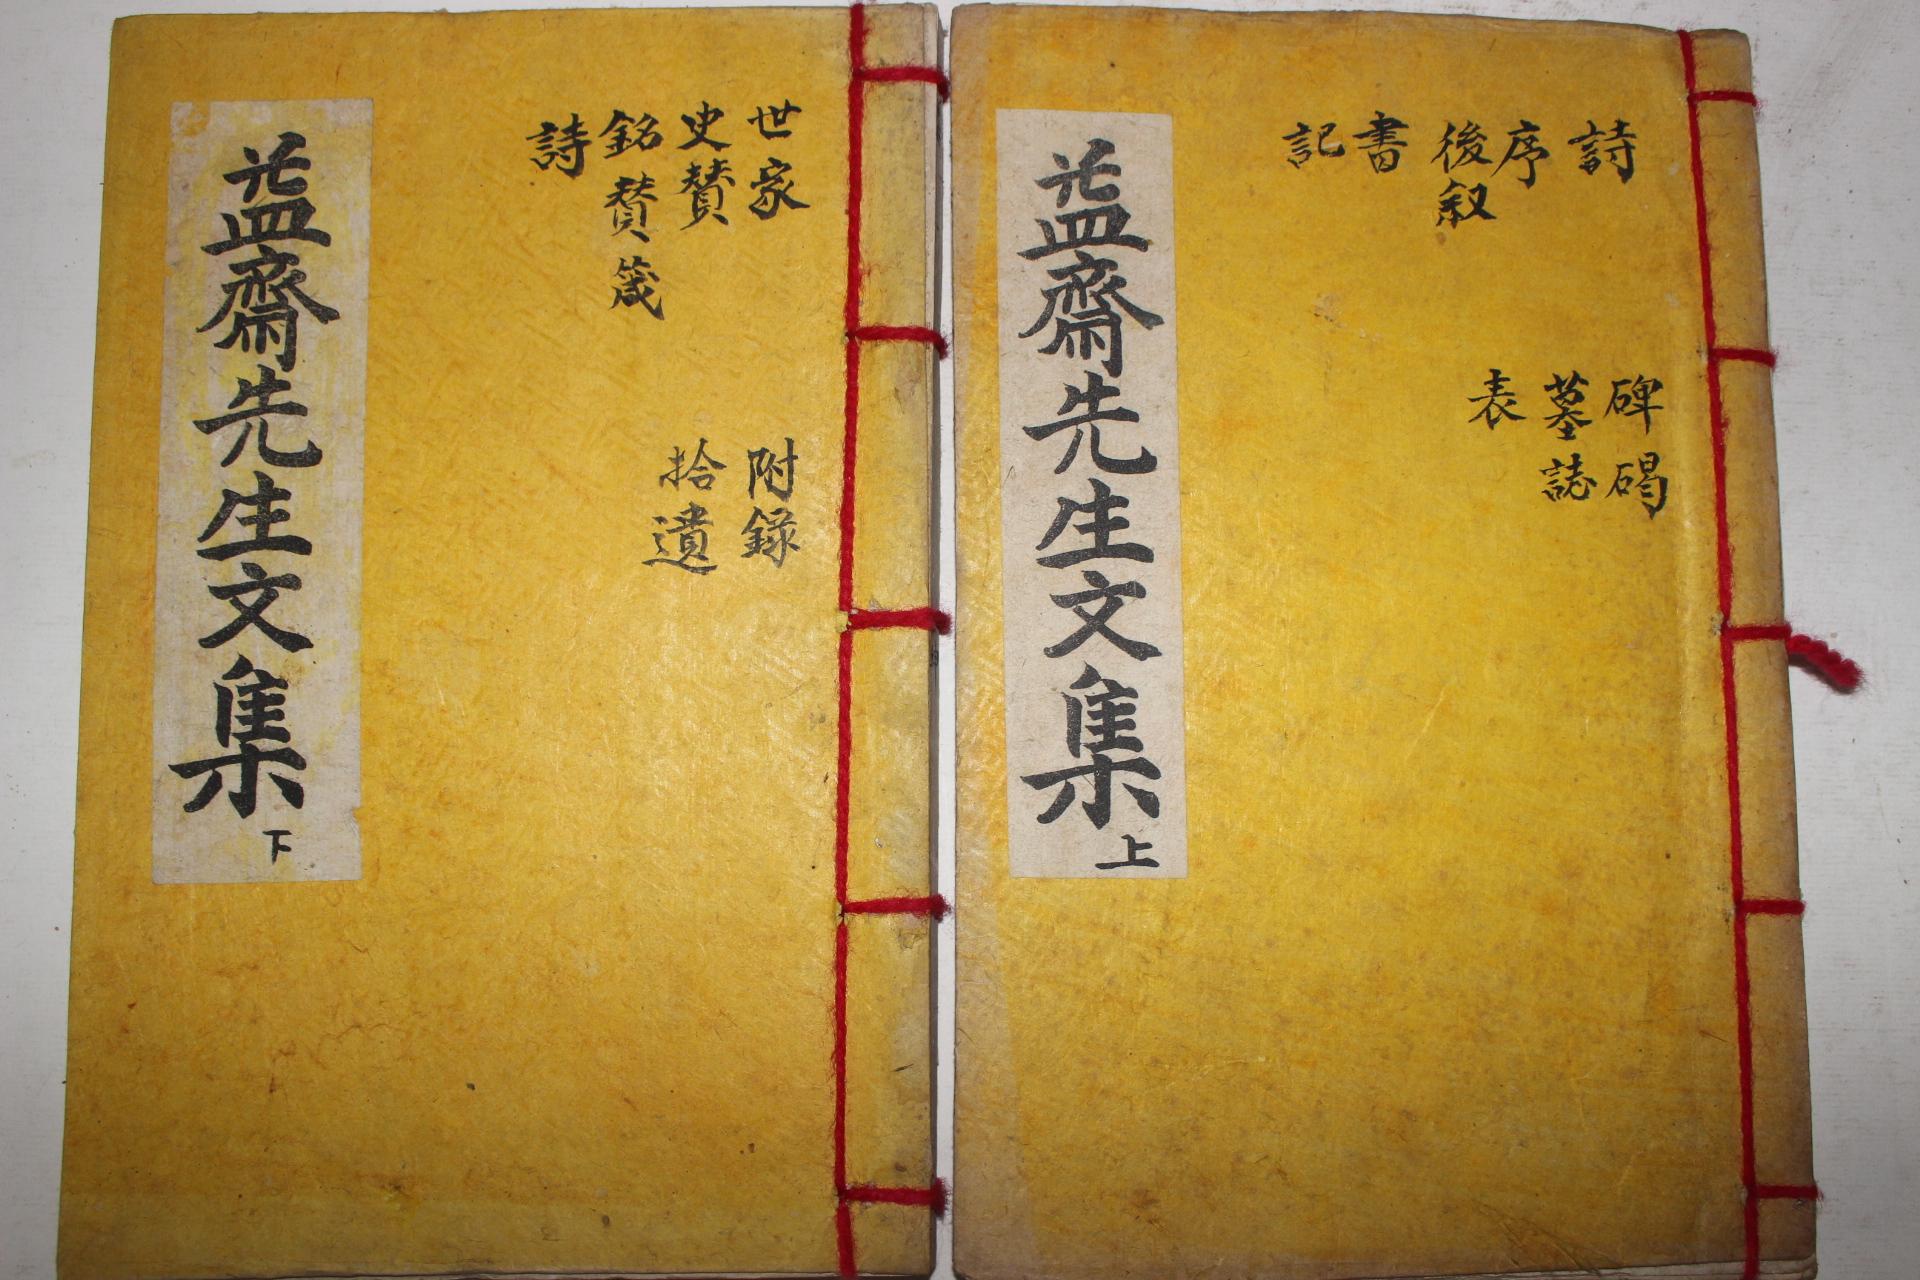 詩
序
後叙
書
記
碑碣
墓誌
表
益齋先生文集上
世家
史贊
銘賛箴
詩
附錄
拾遺
益齋先生文集下